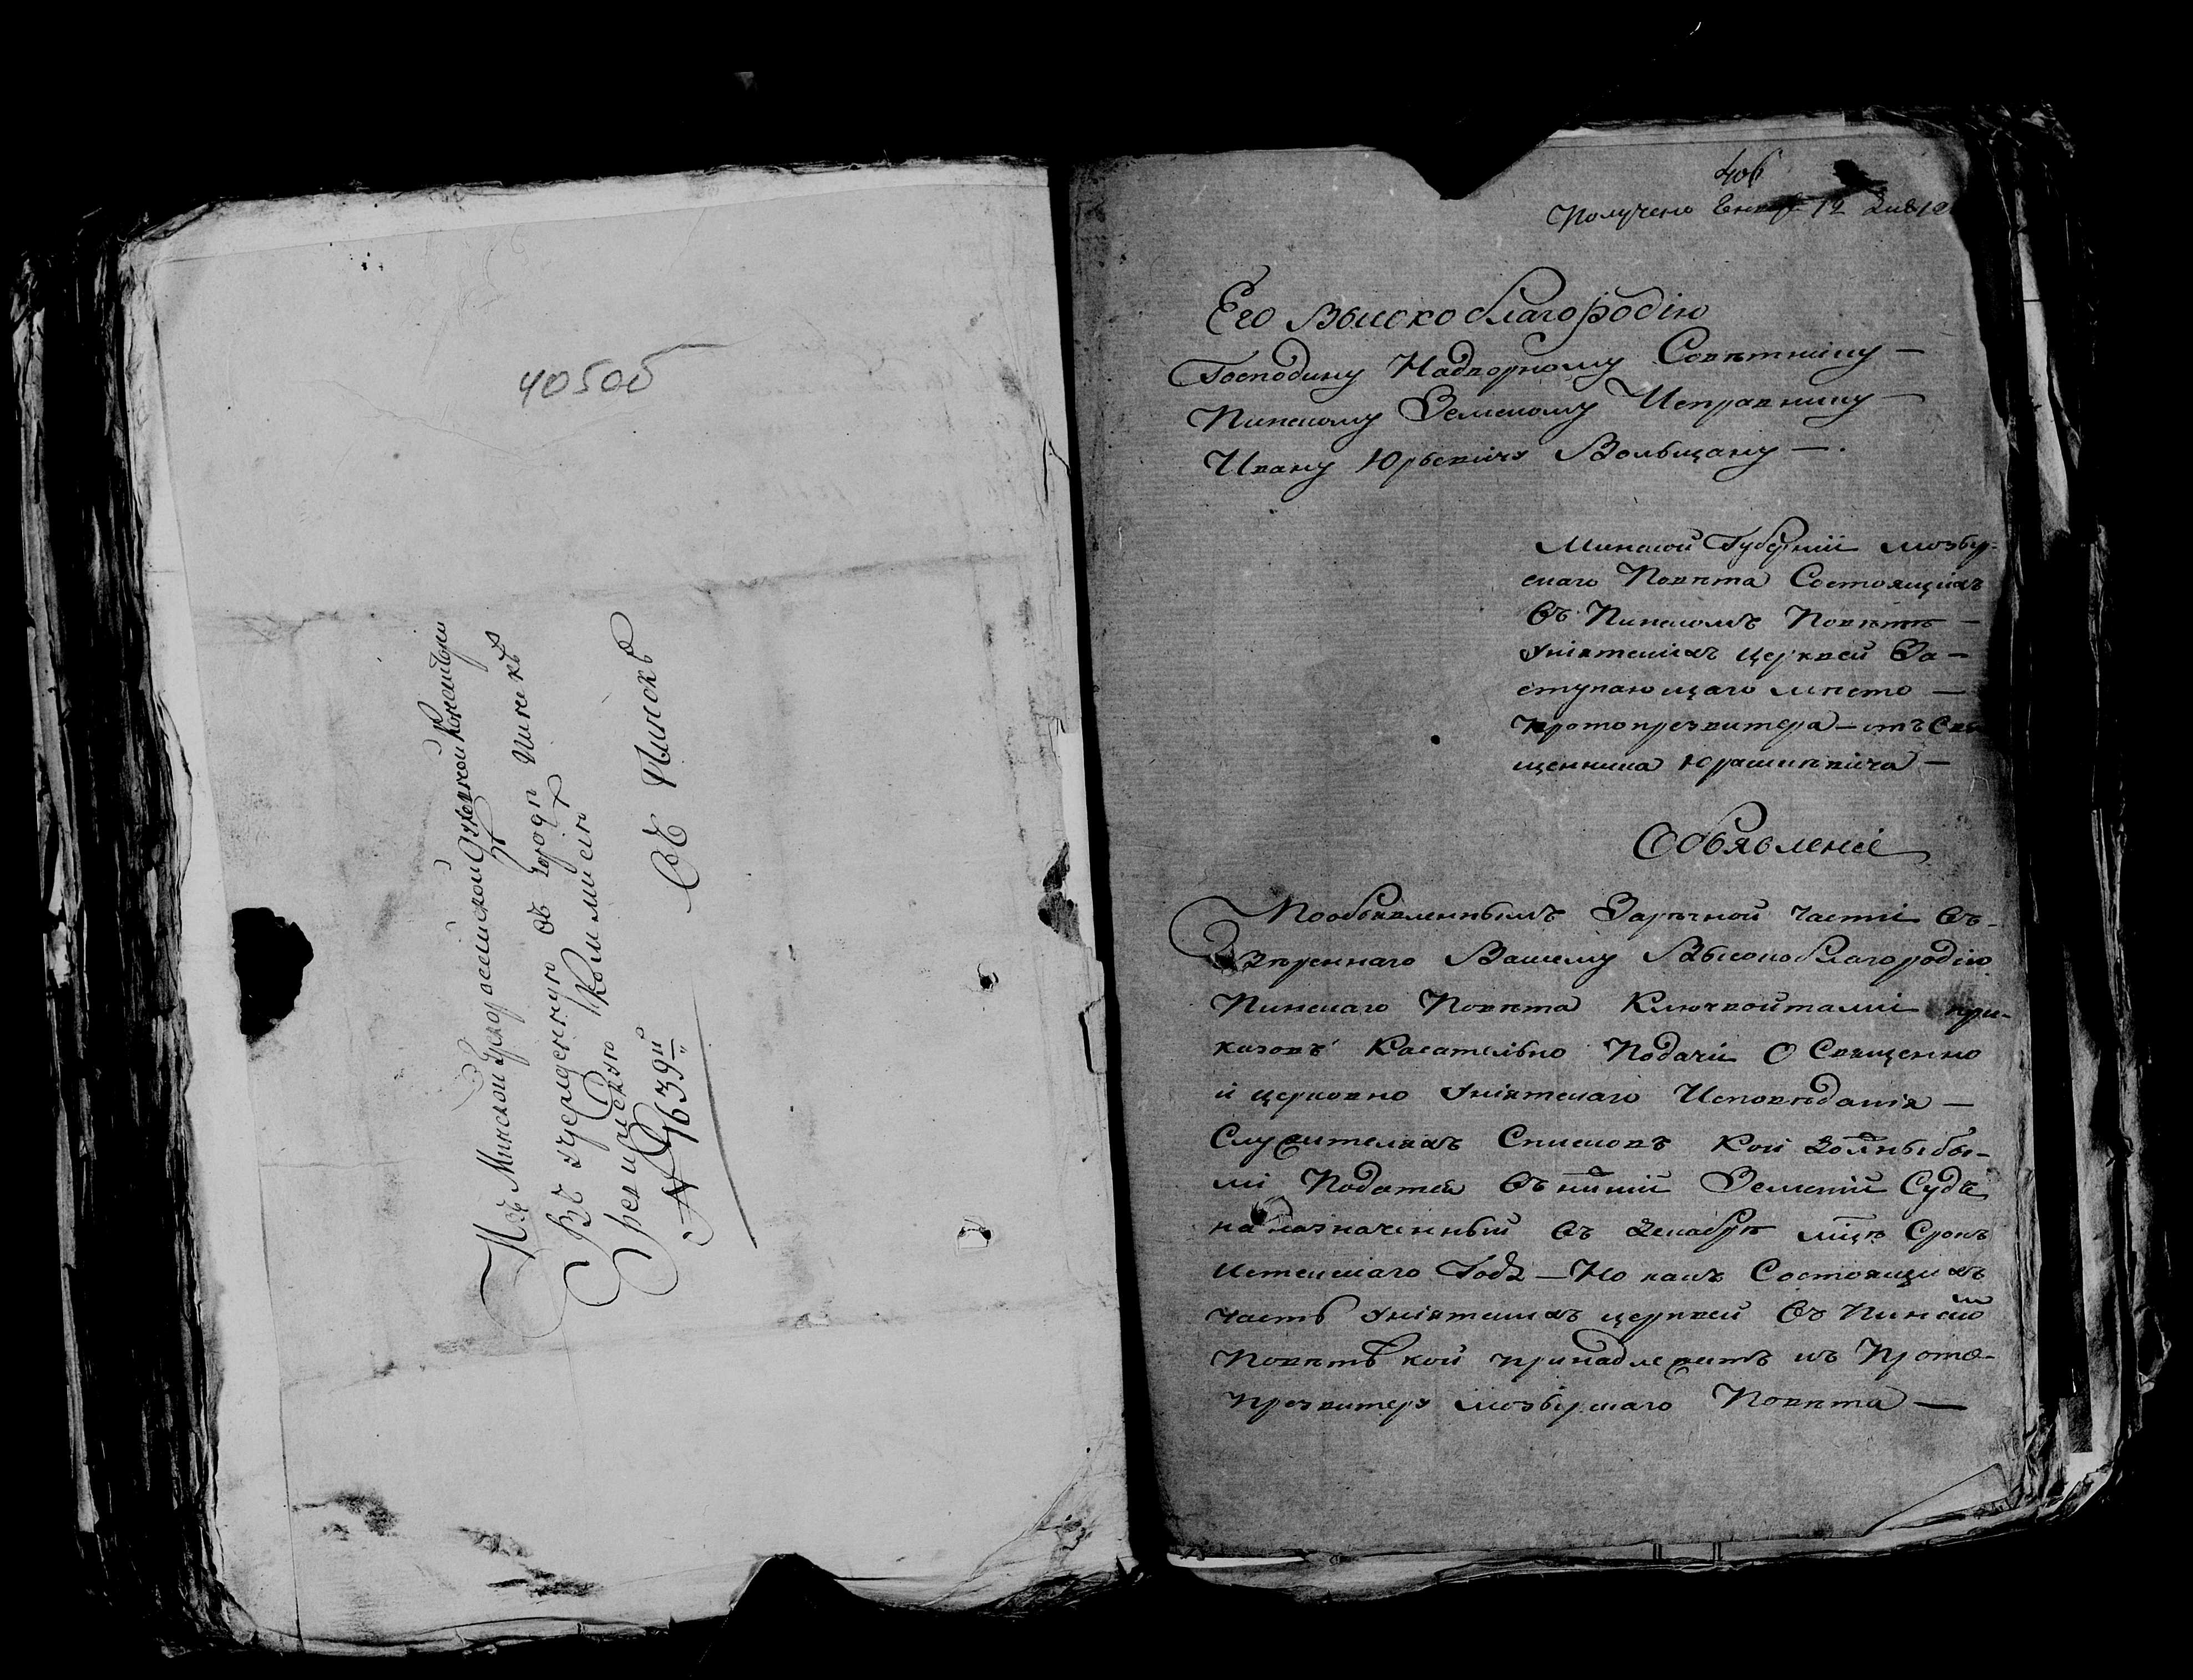 405об
Изъ Минской Греко россійской Духовной Консисторіи
Въ учрежденную въ городѣ Пинскѣ
Ревизскую Коммисію
№ 1639й
Въ Пинскъ
406
Получено Енвр 12
Его Высокоблагородію
Господину Надворному Совѣтнику —
Пинскому Земскому Исправнику —
Ивану Юрьевичу Вольцану — .
Минской Губерніи мозыр-
скаго Повѣта Состоящихъ
Въ Пинскомъ Повѣтѣ —
Уніятскихъ Церквей За-
ступающаго мѣсто —
Протопрезвитера — отъ Свя
щенника Юрашкевича —
Объявленіе
Пообъявленнымъ Зарѣчной Части Въ-
Ввѣреннаго Вашему Высокоблагородію
Пинскаго Повѣта Ключвойтами при-
казовъ Касательно Подачи О Священно
и церковно Уніятскаго Исповѣданія —
Служителяхъ Списковъ Кои должны бы-
ли Податся Въ Земский Судъ
на назначенный Въ декабрѣ мцѣ Срокъ
Истекшаго Года — Но какъ Состоящихъ
Часть Уніятскихъ церквей Въ Пинскомъ
Повѣтѣ кои принадлежитъ къ Прото-
презвитеру мозырскаго Повѣта —